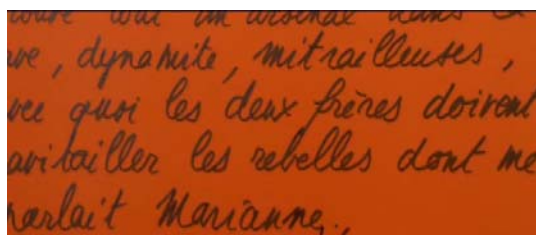 tout un arsenal dans
, dynamite, mitrailleuses,
quoi les deux frères doivent
les rebelles dont me
parlait Marianne,.